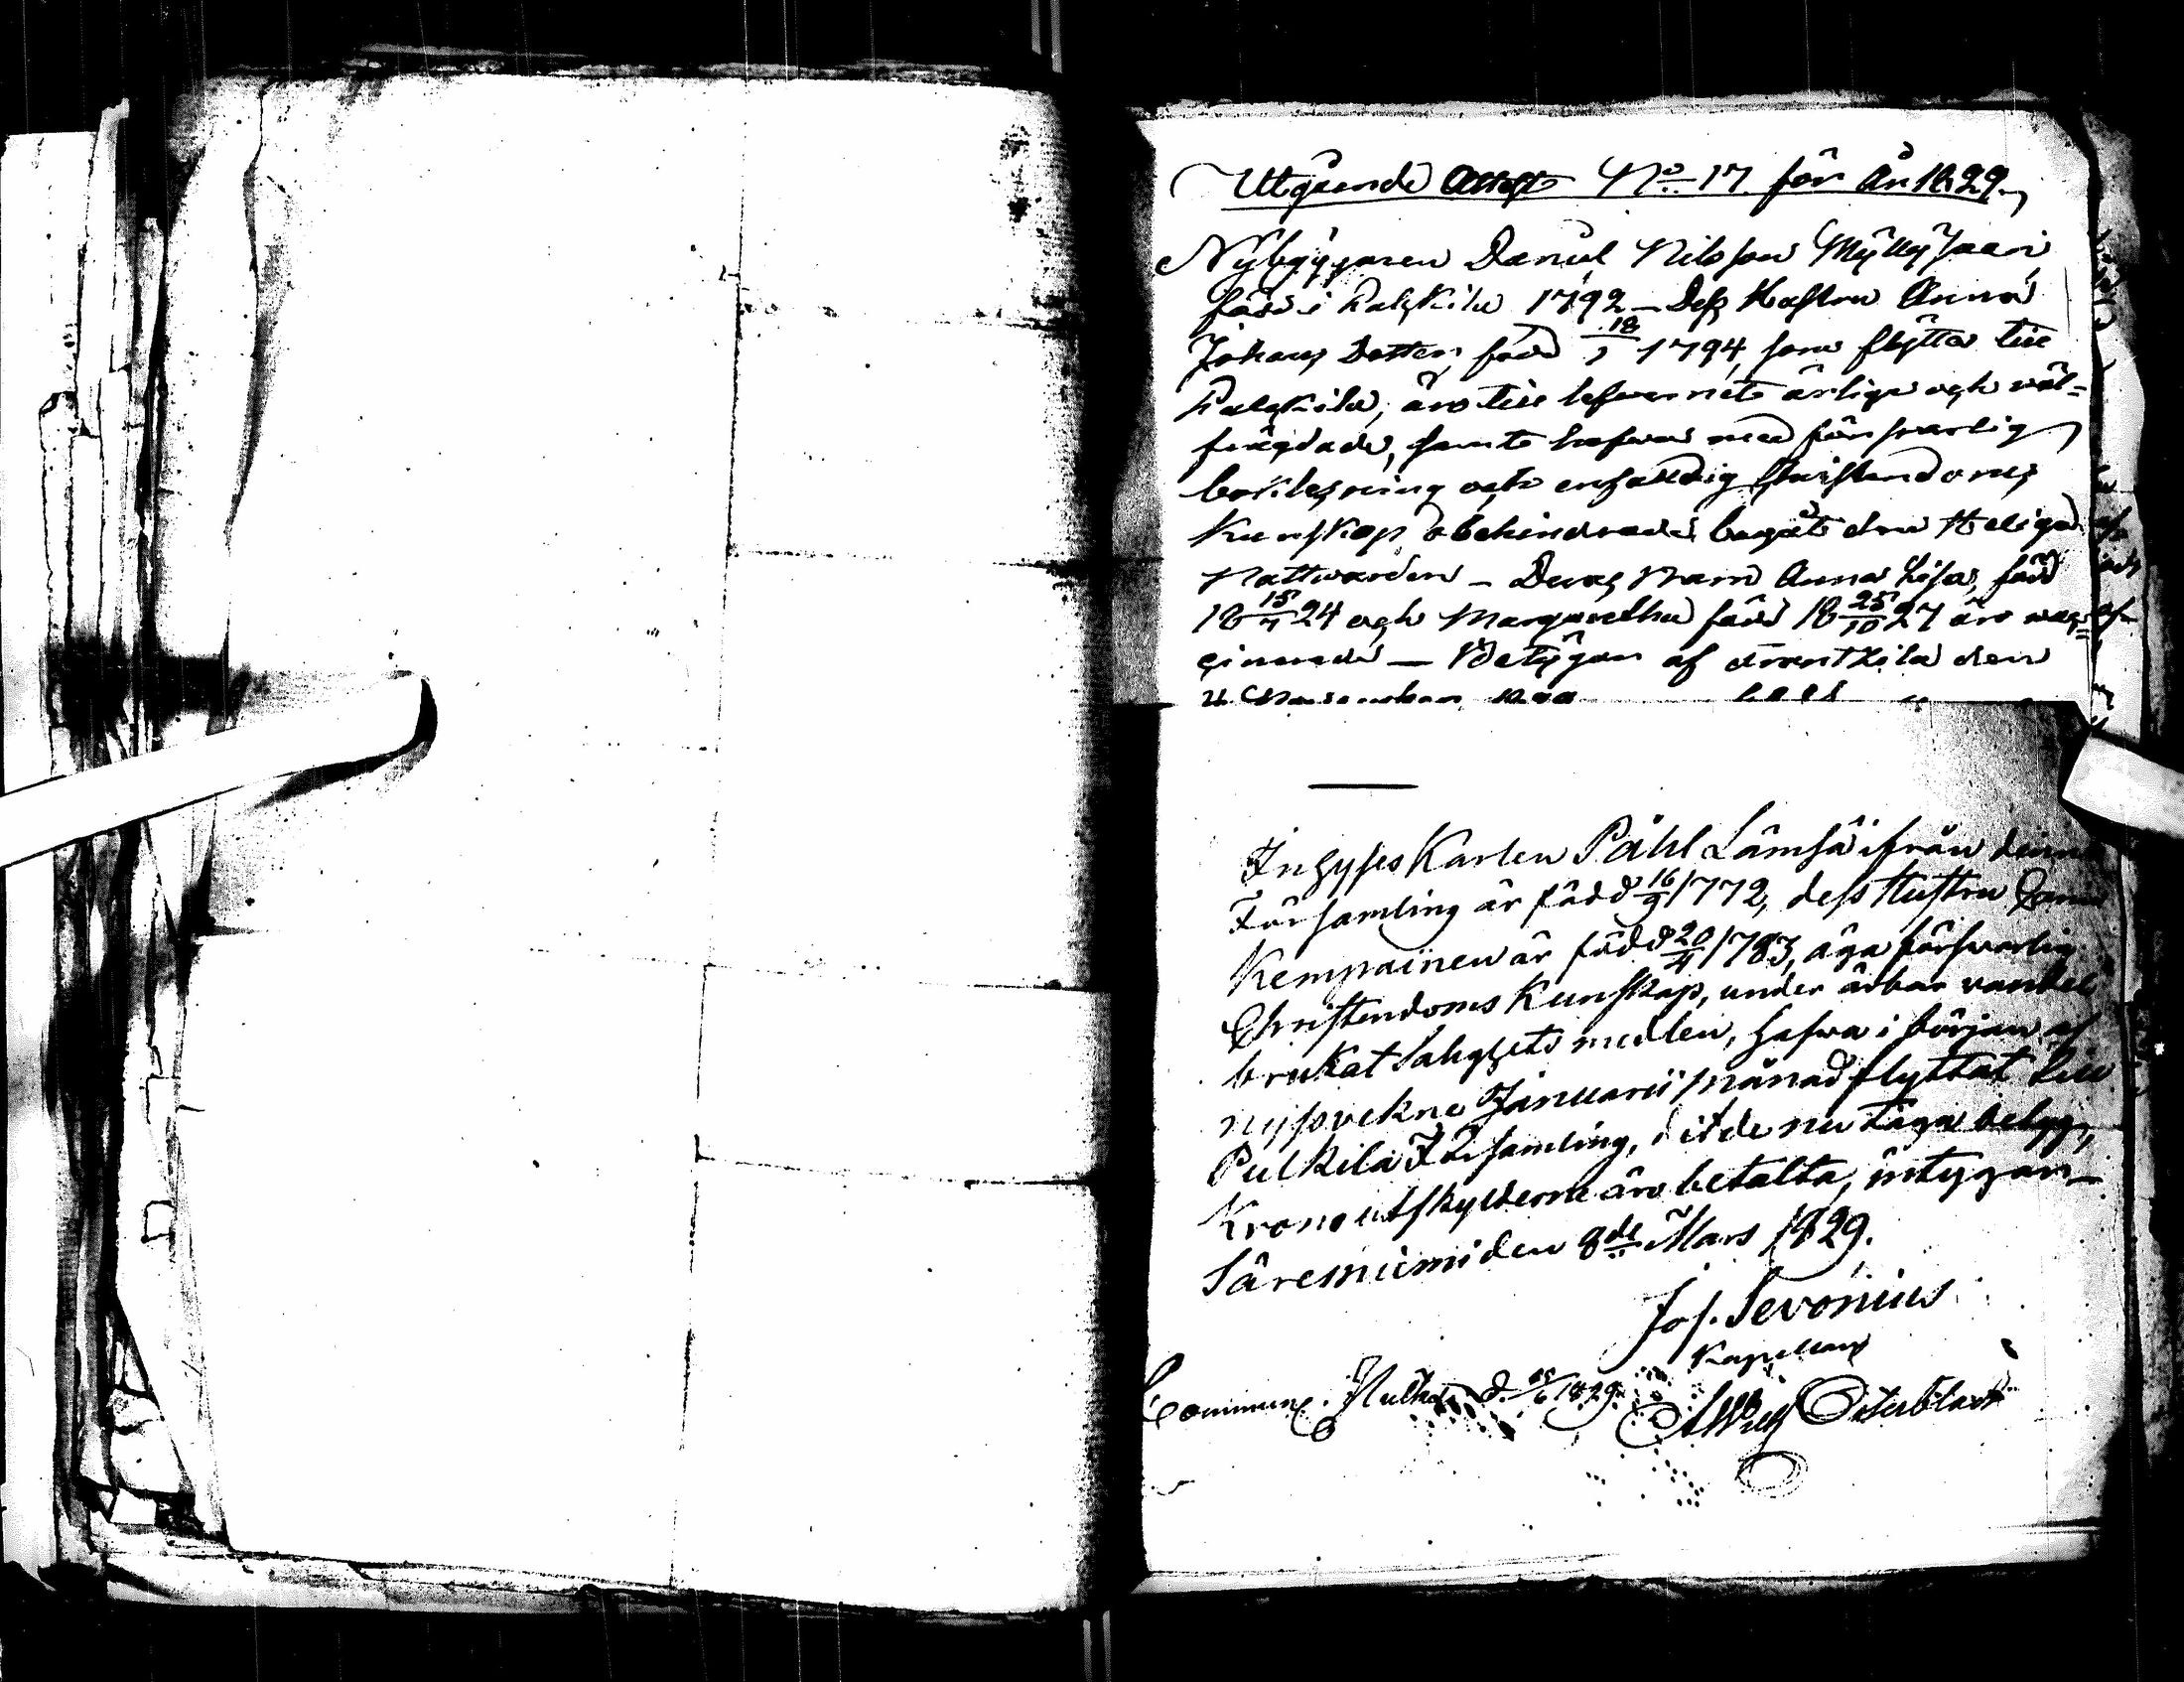 Utgående Attest No 17 för År 1829.
Nybyggaren Daniel Nilsson Myllysaari
född i Pulkkila 1792 – Dess Hustru Anna
Johans Dotter, född 18/1 1794, som flytta till
Pulkkila, äro till lefwernet ärliga och wäl-
frägdade, samt hafwa med försvarlig
bokläsning och enfaldig Christendoms
kunskap obehindrade begåt den Heliga
Nattwarden – Deras Barn Anna Lisa, född
18 15/4 24 och Margaretha född 18 25/10 27 äro wac-
cinerade – Betygar af Frantsila den
Inhyses Karlen Påhl Lämsä ifrån denna
Församling är född 16/9 1772, dess Hustru
Kempainen är född 20/4 1783, äga försvarlig
Christendoms Kunskap, under ärbar vandel
brukat Salighets medlen, hafwa i början af
nyssvekne Januarii månad flyttat till
Pulkila Församling, dit de nu taga betyg,
Krono utskylderne äro betalta, intygar
Säresniemi den 8de Mars 1829.
Jos. Sevonius
Kapellan